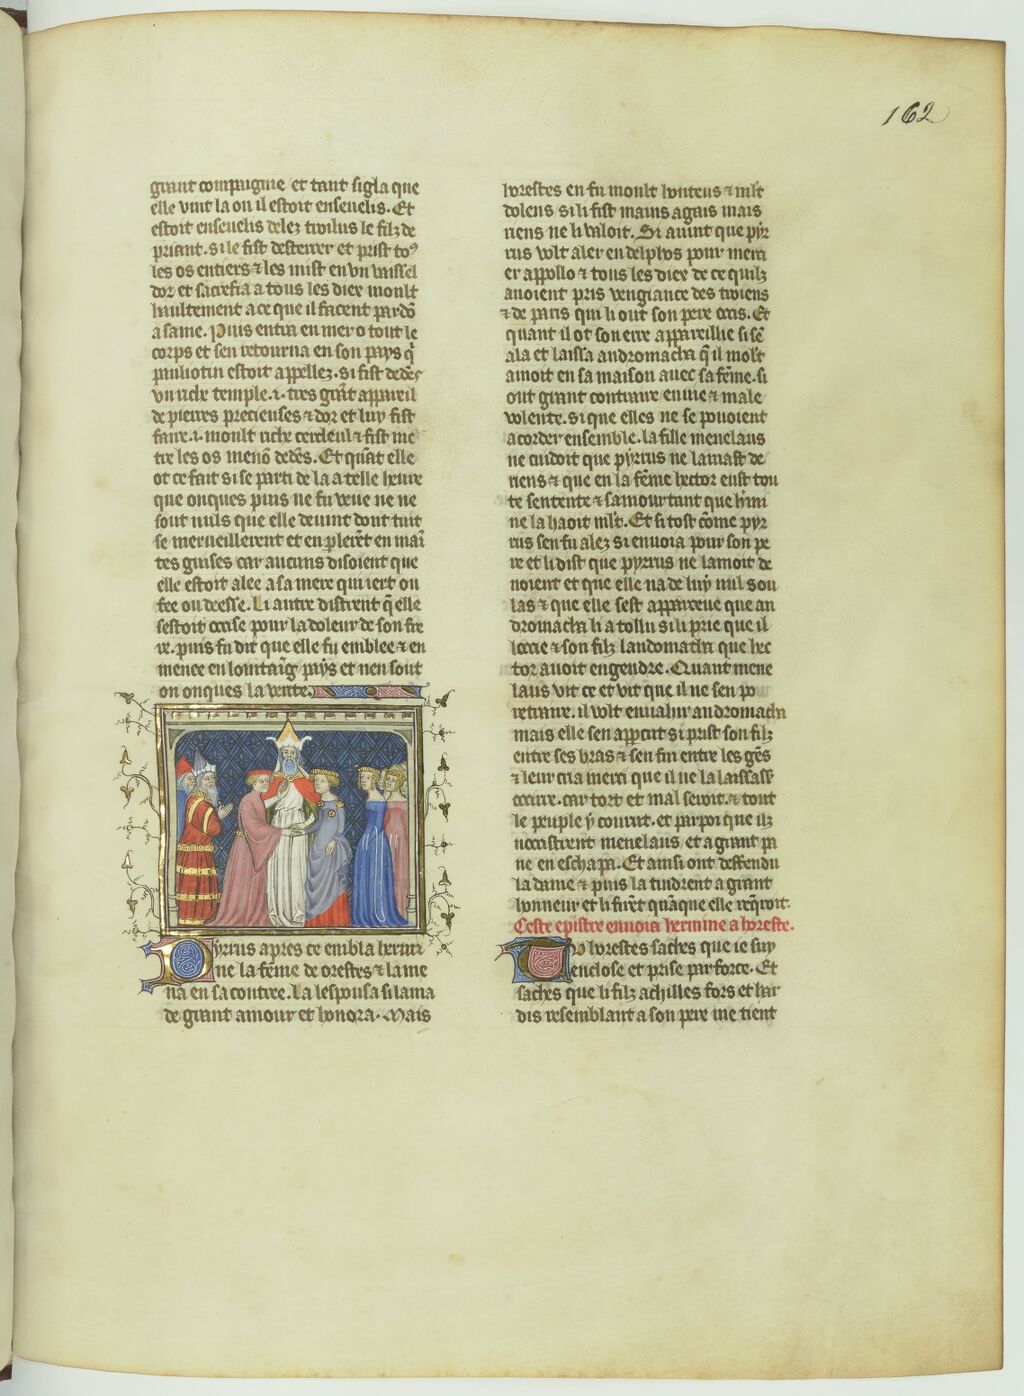 162
grant compaignie et tant sigla que
elle vint la ou il estoit enseuelis. Et
estoit enseuelis delez troilus le filz de
priant. si le fist desterrer et prist to9
les os entiers ⁊ les mist en vn vaissel
dor et sacrefia a tous les diex moult
haultement a ce que il facent pardō
a same. Puis entra en mer o tout le
corps et sen retourna en son pays q̄
pauliotin estoit appellez. si fist dedēs
vn riche temple .i. tres grāt appareil
de pierres precieuses ⁊ dor et luy fist
faire .i. moult riche cercleul ⁊ fist me
tre les os menō dedēs. Et quāt elle
ot ce fait si se parti de la a telle heure
que onques puis ne fu veue ne ne
sout nuls que elle deuint dont tuit
se merueillerent et en plerēt en mai
tes guises car aucuns disoient que
elle estoit alee a sa mere qui iert ou
fee ou deesse. Li autre distrent q̄ elle
sestoit occise pour la doleur de son fre
re. puis fu dit que elle fu emblee ⁊ en
menee en lointaīg pays et nen sout
on onques la verite.
Pyrrus apres ce embla hermi
ne la fēme de orestes ⁊ lame
na en sa contree. La lespousa si lama
de grant amour et honora. Mais
horestes en fu moult honteus ⁊ mlt
dolens si li fist mains agais mais
riens ne li valoit. Si auint que pyr
rus volt aler en delphos pour merci
er appollo ⁊ tous les diex de ce quilz
auoient pris vengiance des troiens
⁊ de paris qui li out son pere occis. Et
quant il ot son erre appareillie si sē
ala et laissa andromacha q̄ il molt
amoit en sa maison auec sa fēme. si
out grant contraire enuie ⁊ male
volente. si que elles ne se pouoient
acorder ensemble. la fille menelaus
ne cuidoit que pyrrus ne lamast de
riens ⁊ que en la fēme hector eust tou
te sentente ⁊ samour tant que hmi
ne la haoit mlt. Et si tost cōme pyr
rus sen fu alez si enuoia pour son pe
re et li dist que pyrrus ne lamoit de
noient et que elle na de luy nul sou
las ⁊ que elle sest apparceue que an
dromacha li a tollu si li prie que il
loccie ⁊ son filz landomatha que hec
tor auoit engendre. Quant mene
laus vit ce et vit que il ne sen po
retraire. il volt enuahir andromacha
mais elle sen apparcut si prist son filz
entre ses bras ⁊ sen fui entre les gēs
⁊ leur cria merci que il ne la laissass
occire. car tort et mal seroit. ⁊ tout
le peuple y courut. et par poi que ilz
noccistrent menelaus et a grant pa
ne en eschapa. Et ainsi ont deffendu
la dame ⁊ puis la tindrent a grant
honneur et li firēt quāque elle reqroit.
Ceste epistre enuoia hermine a horeste.
Tu horestes saches que ie suy
enclose et prise par force. Et
saches que li filz achilles fors et har
dis resemblant a son pere me tient